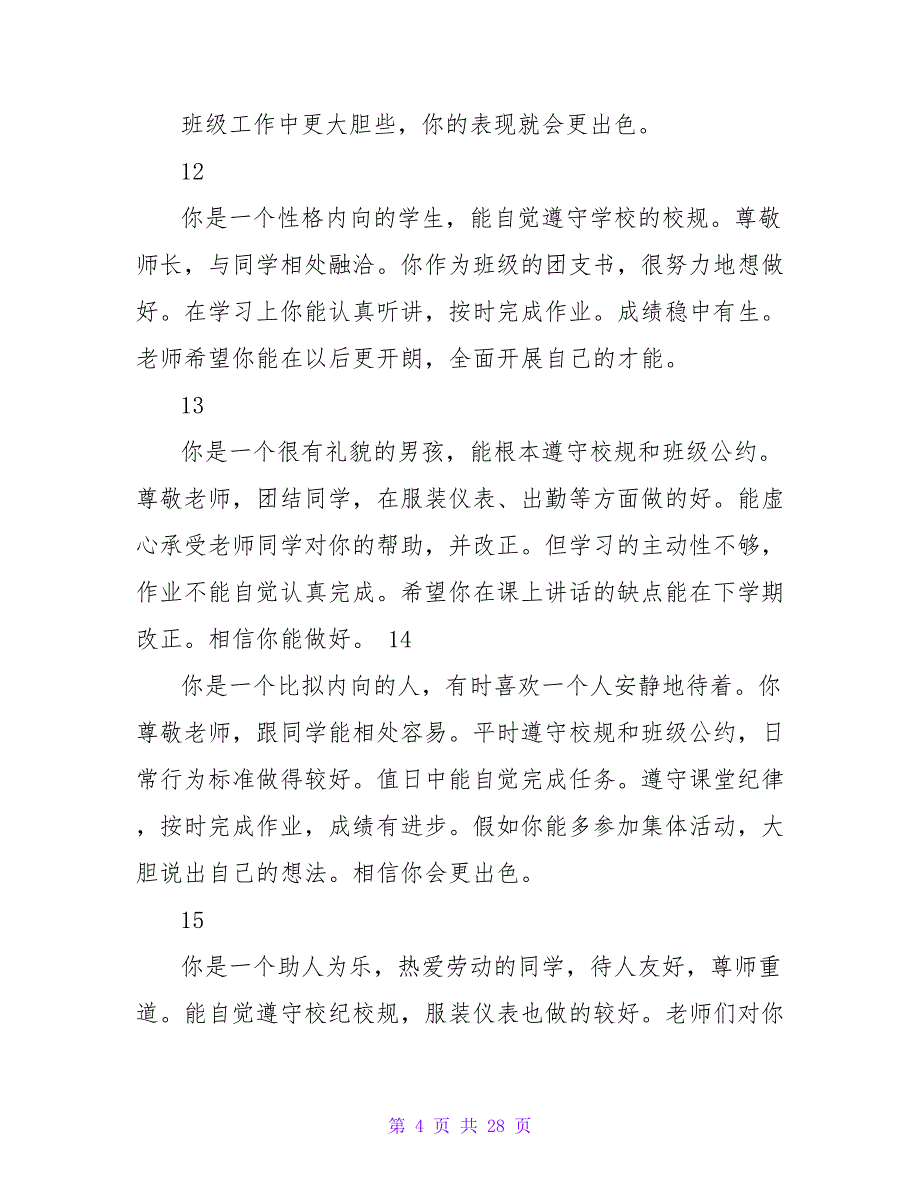 班级工作中更大胆些，你的表现就会更出色。
12
你是一个性格内向的学生，能自觉遵守学校的校规。尊敬
师长，与同学相处融洽。你作为班级的团支书，很努力地想做
好。在学习上你能认真听讲，按时完成作业。成绩稳中有生。
老师希望你能在以后更开朗，全面开展自己的才能。
13
你是一个很有礼貌的男孩，能根本遵守校规和班级公约。
尊敬老师，团结同学，在服装仪表、出勤等方面做的好。能虚
心承受老师同学对你的帮助，并改正。但学习的主动性不够，
作业不能自觉认真完成。希望你在课上讲话的缺点能在下学期
改正。相信你能做好。 14
你是一个比拟内向的人，有时喜欢一个人安静地待着。你
尊敬老师，跟同学能相处容易。平时遵守校规和班级公约，日
常行为标准做得较好。值日中能自觉完成任务。遵守课堂纪律
，按时完成作业，成绩有进步。假如你能多参加集体活动，大
胆说出自己的想法。相信你会更出色。
15
你是一个助人为乐，热爱劳动的同学，待人友好，尊师重
道。能自觉遵守校纪校规，服装仪表也做的较好。老师们对你
第 4 页 共 28 页